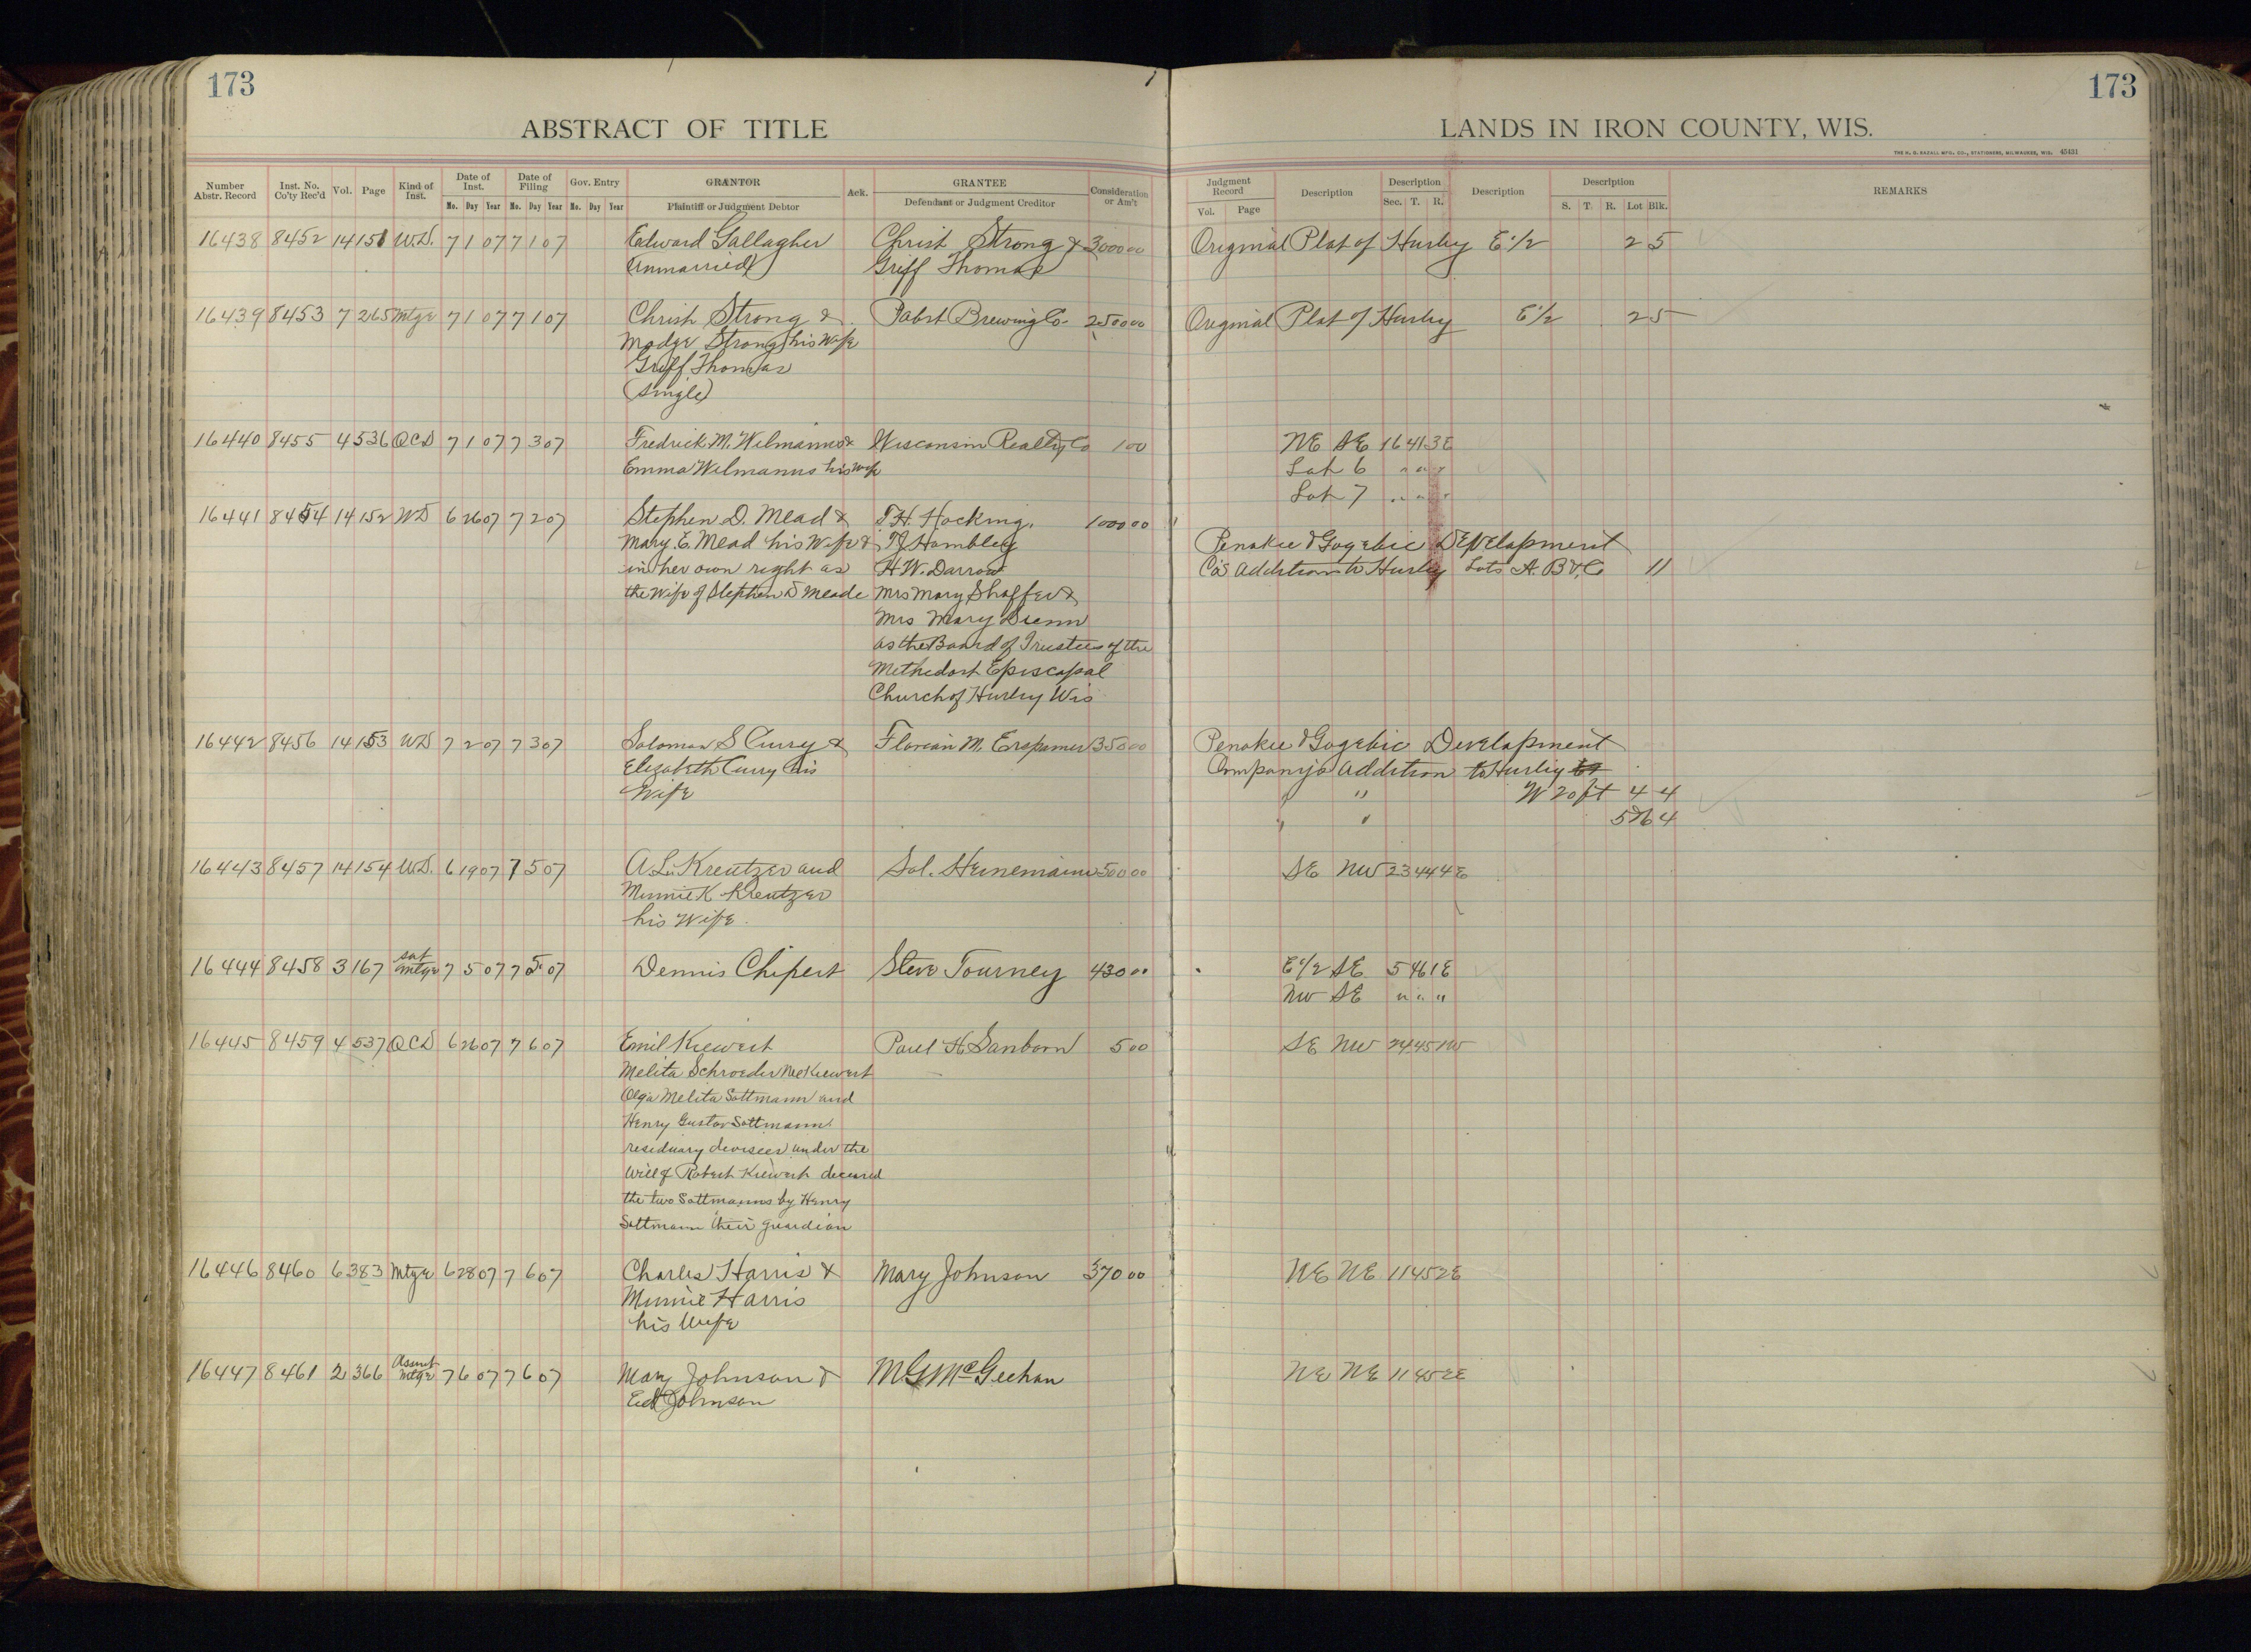 173
173
ABSTRACT OF TITLE
LANDS IN IRON COUNTY, WIS.
THE H. G. RAZALL MFG. CO., STATIONERS, MILWAUKEE, WIS. 45431
Number Abstr. Record Inst. No. Co'ty Rec'd Vol. Page Kind of Inst. Date of Inst. Date of Filing Gov. Entry GRANTOR Ack. GRANTEE Consideration or Am't Judgment Record Description Description Description Description REMARKS
Mo. Day Year Mo. Day Year Mo. Day Year Plaintiff or Judgment Debtor Defendant or Judgment Creditor Vol. Page Sec. T. R. S. T. R. Lot Blk.
16438 8452 14 151 W.D. 7 1 07 7 1 07 Edward Gallagher Christ Strong & 3000 00 Original Plat of Hurley E 1/2 2 5
(unmarried) Griff Thomas
16439 8453 7 265 Mtge 7 1 07 7 1 07 Christ Strong & Pabst Brewing Co 2500 00 Original Plat of Hurley E 1/2 2 5
Madge Strong his Wife
Griff Thomas
(single)
16440 8455 4 536 QCD 7 1 07 7 3 07 Fredrick M. Wilmanns & Wisconsin Realty Co 1 00 NE SE 16 41 3E
Emma Wilmanns his Wife Lot 6 " " "
Lot 7 " " "
16441 8454 14 152 WD 6 26 07 7 2 07 Stephen D. Mead & T.H. Hocking, 1000 00
Mary E. Mead his Wife & T J Hambley Penokee & Gogebic Development
in her own right as H W. Darrow Co's Addition to Hurley Lots A. B & C 11
the Wife of Stephen D Meade Mrs Mary Shaffer &
Mrs Mary
as the Board of Trustees of the
Methodist Episcopal
Church of Hurley Wis
16442 8456 14 153 WD 7 2 07 7 3 07 Solomon S Curry & Florian M. Erspamer 350 00 Penokee & Gogebic Development
Elizabeth Curry his Company's Addition to Hurley
Wife " " W 20 ft 4 4
" " 5 4
16443 8457 14 154 W.D. 6 19 07 7 5 07 A.L. Kreutzer and Sol. Heinemann 500 00 SE NW 23 44 4E
Minnie K Kreutzer
his Wife
16444 8458 3 167 Sat Mtge 7 5 07 7 5 07 Dennis Chipert Steve Tourney 430 00 E 1/2 SE 5 46 1E
NW SE " " "
16445 8459 4 537 QCD 6 26 07 7 6 07 Emil Kiewert Paul H Sanborn 5 00 SE NW 24 45 1W
Melita Schroeder Nee Kiewert
Olga Melita Sottmann and
Henry Gustav Sottmann
residuary devisees under the
Will of Robert Kiewert deceased
the two Sottmanns by Henry
Sottmann their guardian
16446 8460 6 383 Mtge 6 28 07 7 6 07 Charles Harris & Mary Johnson 370 00 NE NE 11 45 2E
Minnie Harris
his Wife
16447 8461 2 366 Assmt Mtge 7 6 07 7 6 07 Mary Johnson & McGeehan NE NE 11 45 2E
Ed Johnson